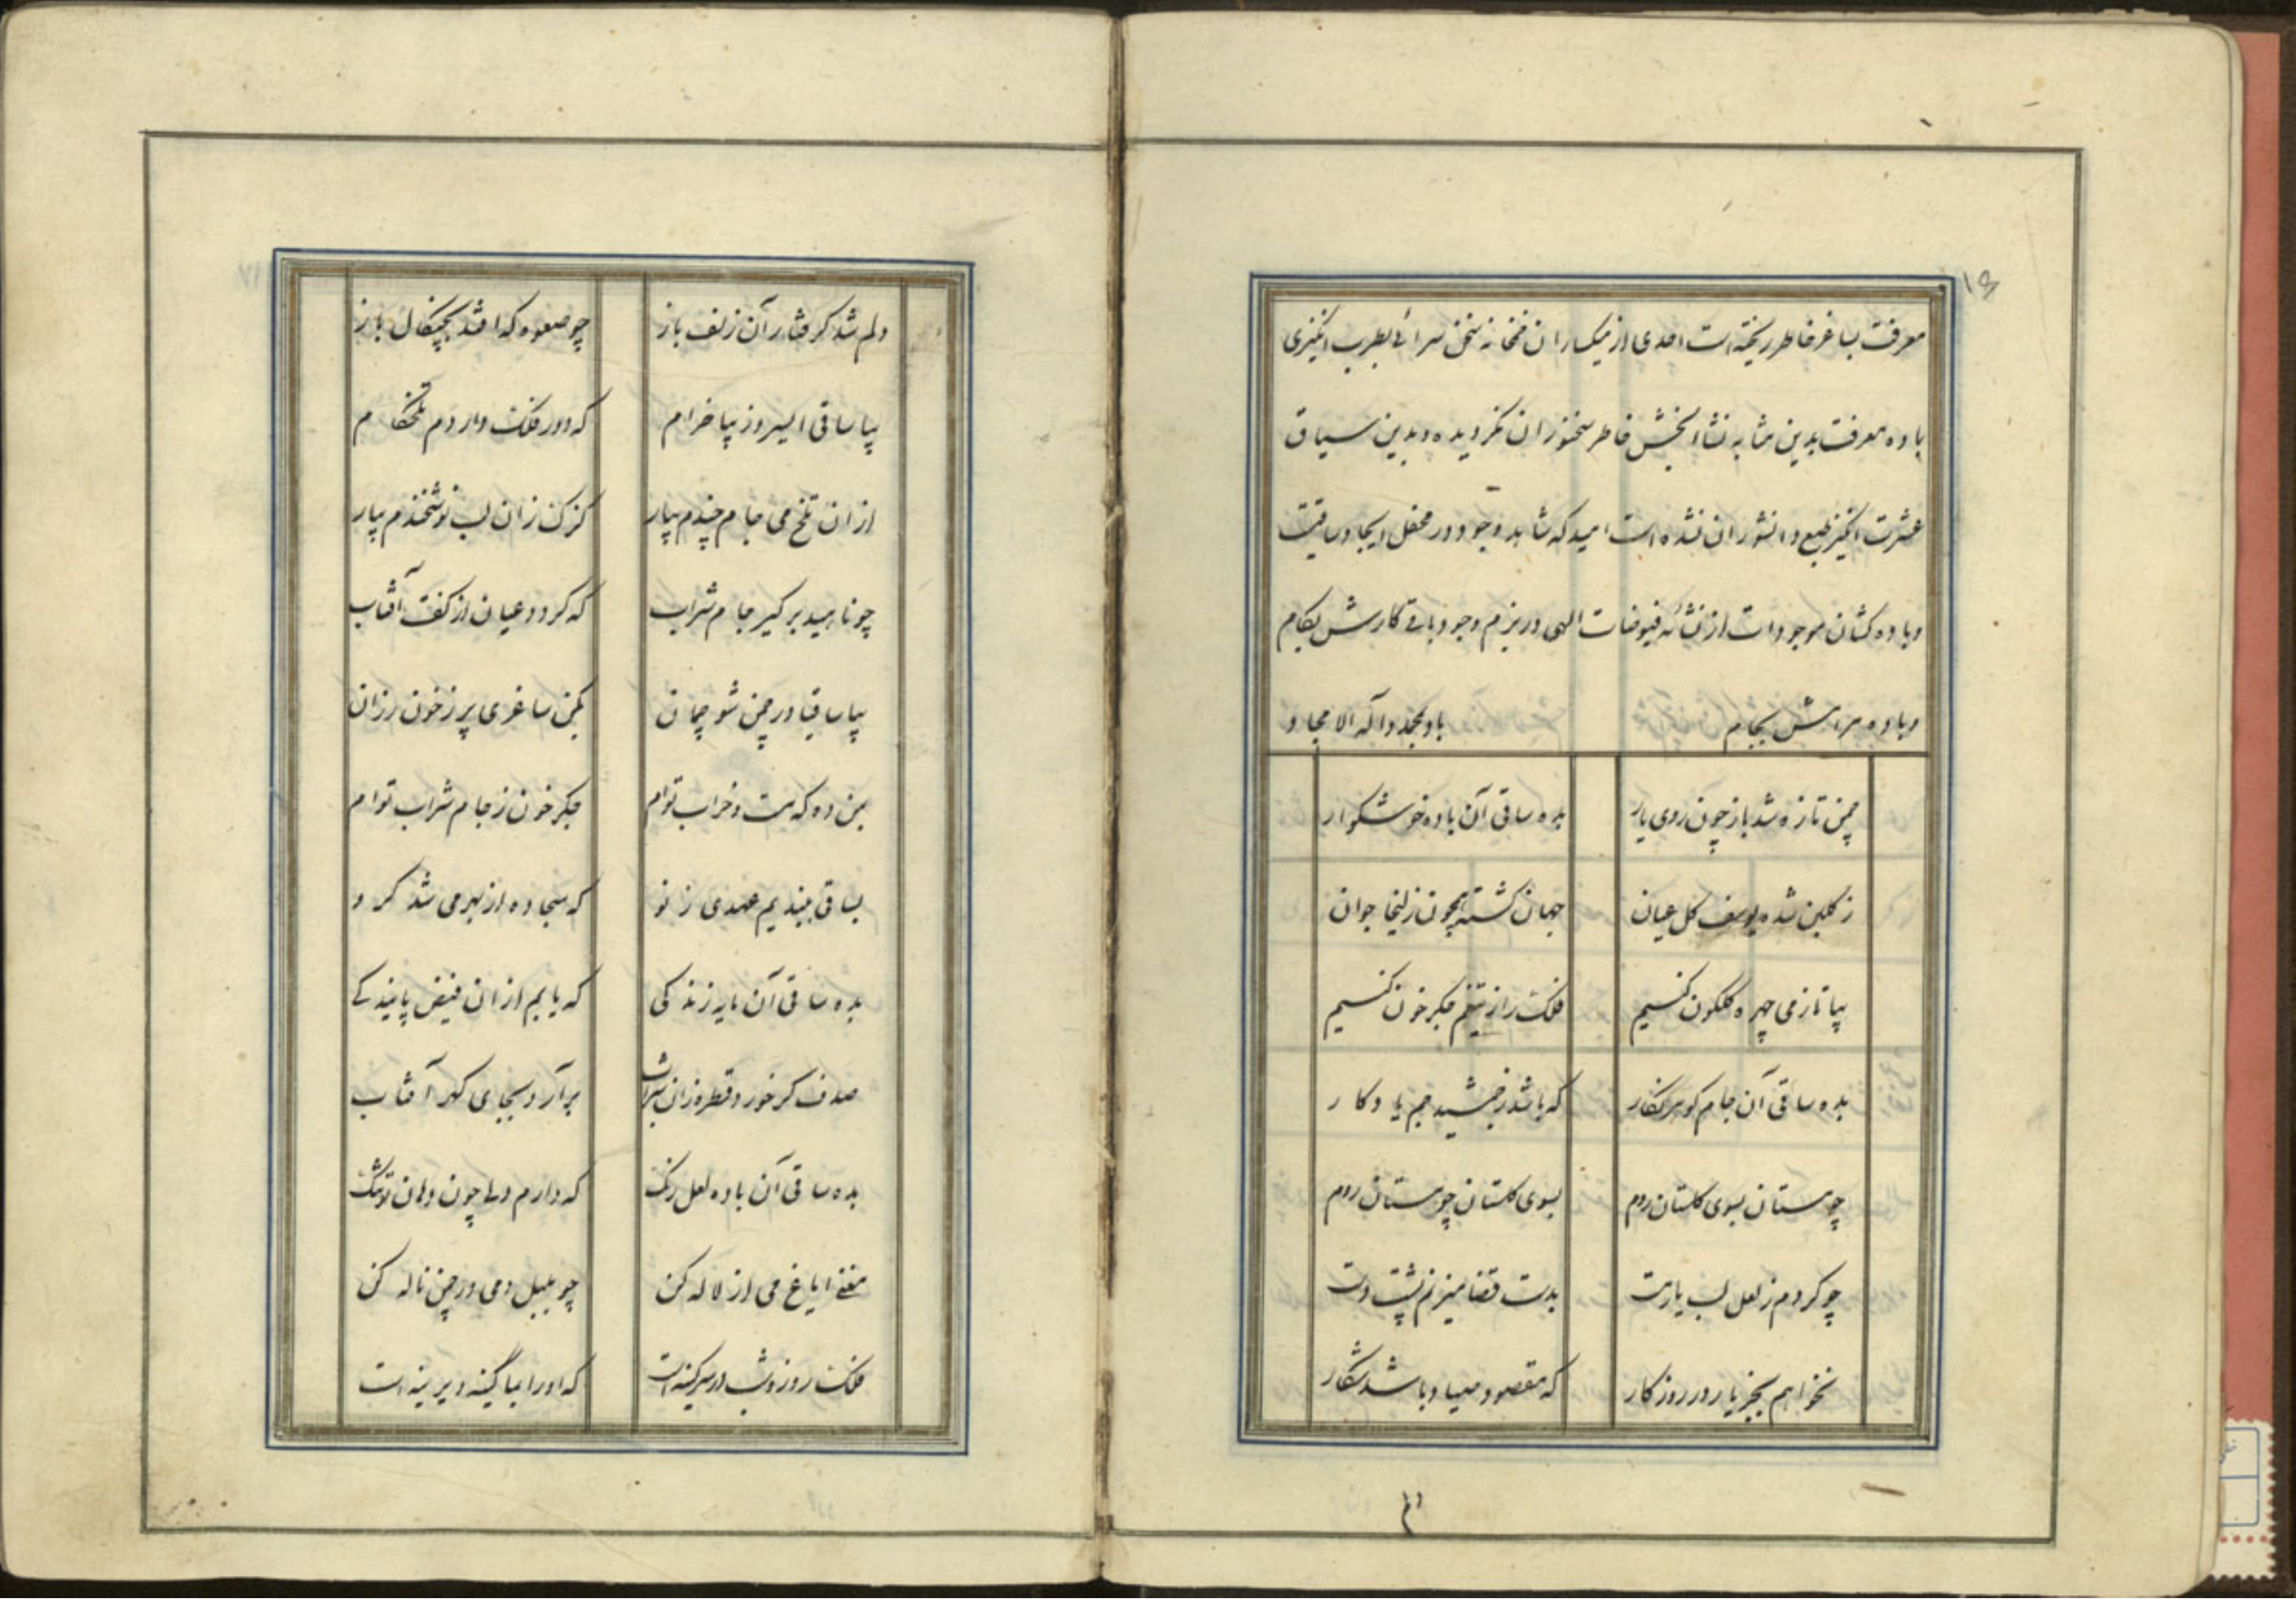 ۱۶
معرفت بساغر خاطر ریخته است احدی از میکساران خمخانه سخن سرائی بطرب انگیزی
باده معرفت بدین مثابه نشاء بخش خاطر سخنوران نکردیده و بدین سیاق
عشرت انگیز طبع دانشوران نشده است امید که شاهد وجود در محفل ایجاد ساقیت
و باده کشان موجودات از نشائه فیوضات الهی در بزم وجود باقی کارش بکام
و باده مرامش بجام باد بمحمد و آله الامجاد
چمن تازه شد باز چون روی یار بده ساقی آن باده خوشکوار
ز کلبن شده یوسف کل عیان جهان کشته همچون زلیخا جوان
بیا تا ز می چهره کلکون کنیم فلک را ز تیغم جکر خون کنیم
بده ساقی آن جام کوهر نکار که باشد ز جمشید جم یادکار
چو مستان بسوی کلستان روم بسوی کلستان چو مستان روم
چو کردم ز لعل لب یار مست بدست قضا میزنم پشت دست
نخواهم بجز یار در روزکار که مقصود صیاد باشد شکار
دلم شد کرفتار آن زلف باز چو صعوه که افتد بچنکال باز
بیا ساقی امروز بپا خرام که دور فلک دارم تلخکام
از ان تلخ می جام چندم بیار کزک زان لب نوشخندم بیار
چو ناهید بر کیر جام شراب که کردد عیان از کفت آفتاب
بیا ساقیا در چمن شو چمان بکن ساغری پر ز خون رزان
بمن ده که مست و خراب توام جکر خون ز جام شراب توام
بساقی ببندیم عهدی ز نو که سجاده از بهر می شد کرو
بده ساقی آن مایه زندکی که یابم از ان فیض پایندکی
صدف کر خورد قطره زان شراب برآرد بجای کهر آفتاب
بده ساقی آن باده لعل رنک که دارم دلی چون دهان تو تنک
مغنی ایاغ می از لاله کن چو بلبل دمی در چمن ناله کن
فلک روز و شب در سر کینه است که او را بما کینه دیرینه است